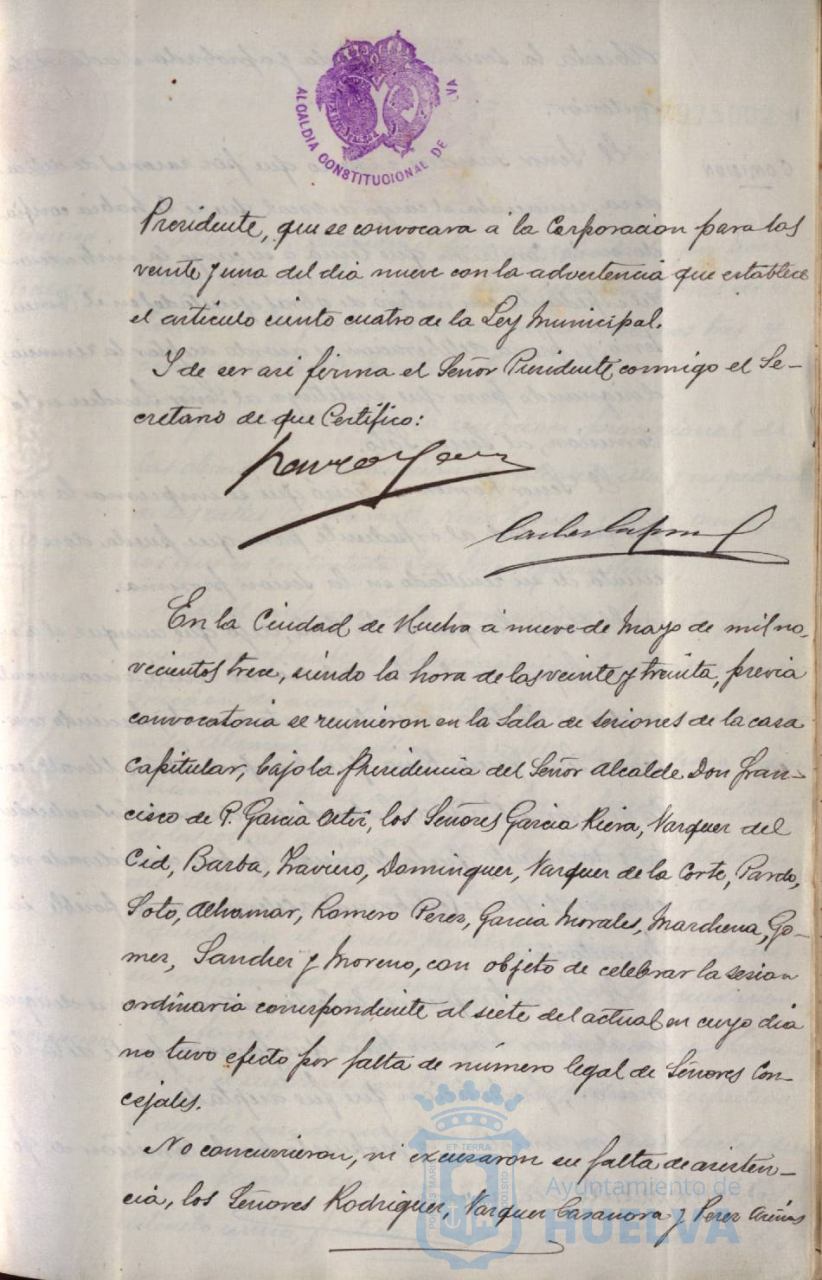 ALCALDIA CONSTITUCIONAL DE VA
Presidente, que se convocara á la Corporacion para las
veinte y una del dia nueve con la advertencia que establece
el articulo ciento cuatro de la Ley Municipal.
Y de ser asi firma el Señor Presidente conmigo el Se-
cretario de que Certifico:
En la Ciudad de Huelva á nueve de Mayo de mil no-
vecientos trece, siendo la hora de las veinte y treinta, previa
convocatoria se reunieron en la Sala de sesiones de la casa
Capitular, bajo la Presidencia del Señor Alcalde Don Fran-
cisco de P. Garcia, los Señores Garcia, Vazquez del
Cid, Barba, Traviero, Dominguez, Vazquez de la Corte, Pardo,
Soto, Alhamar, Romero Perez, Garcia Morales, Marchena, Go-
mez, Sanchez y Moreno, con objeto de celebrar la sesion
ordinaria correspondiente al siete del actual en cuyo dia
no tuvo efecto por falta de número legal de Señores Con-
cejales.
No concurrieron, ni excusaron su falta de asisten-
cia, los Señores Rodriguez, Vazquez Casanova y Perez
Ayuntamiento de
HUELVA